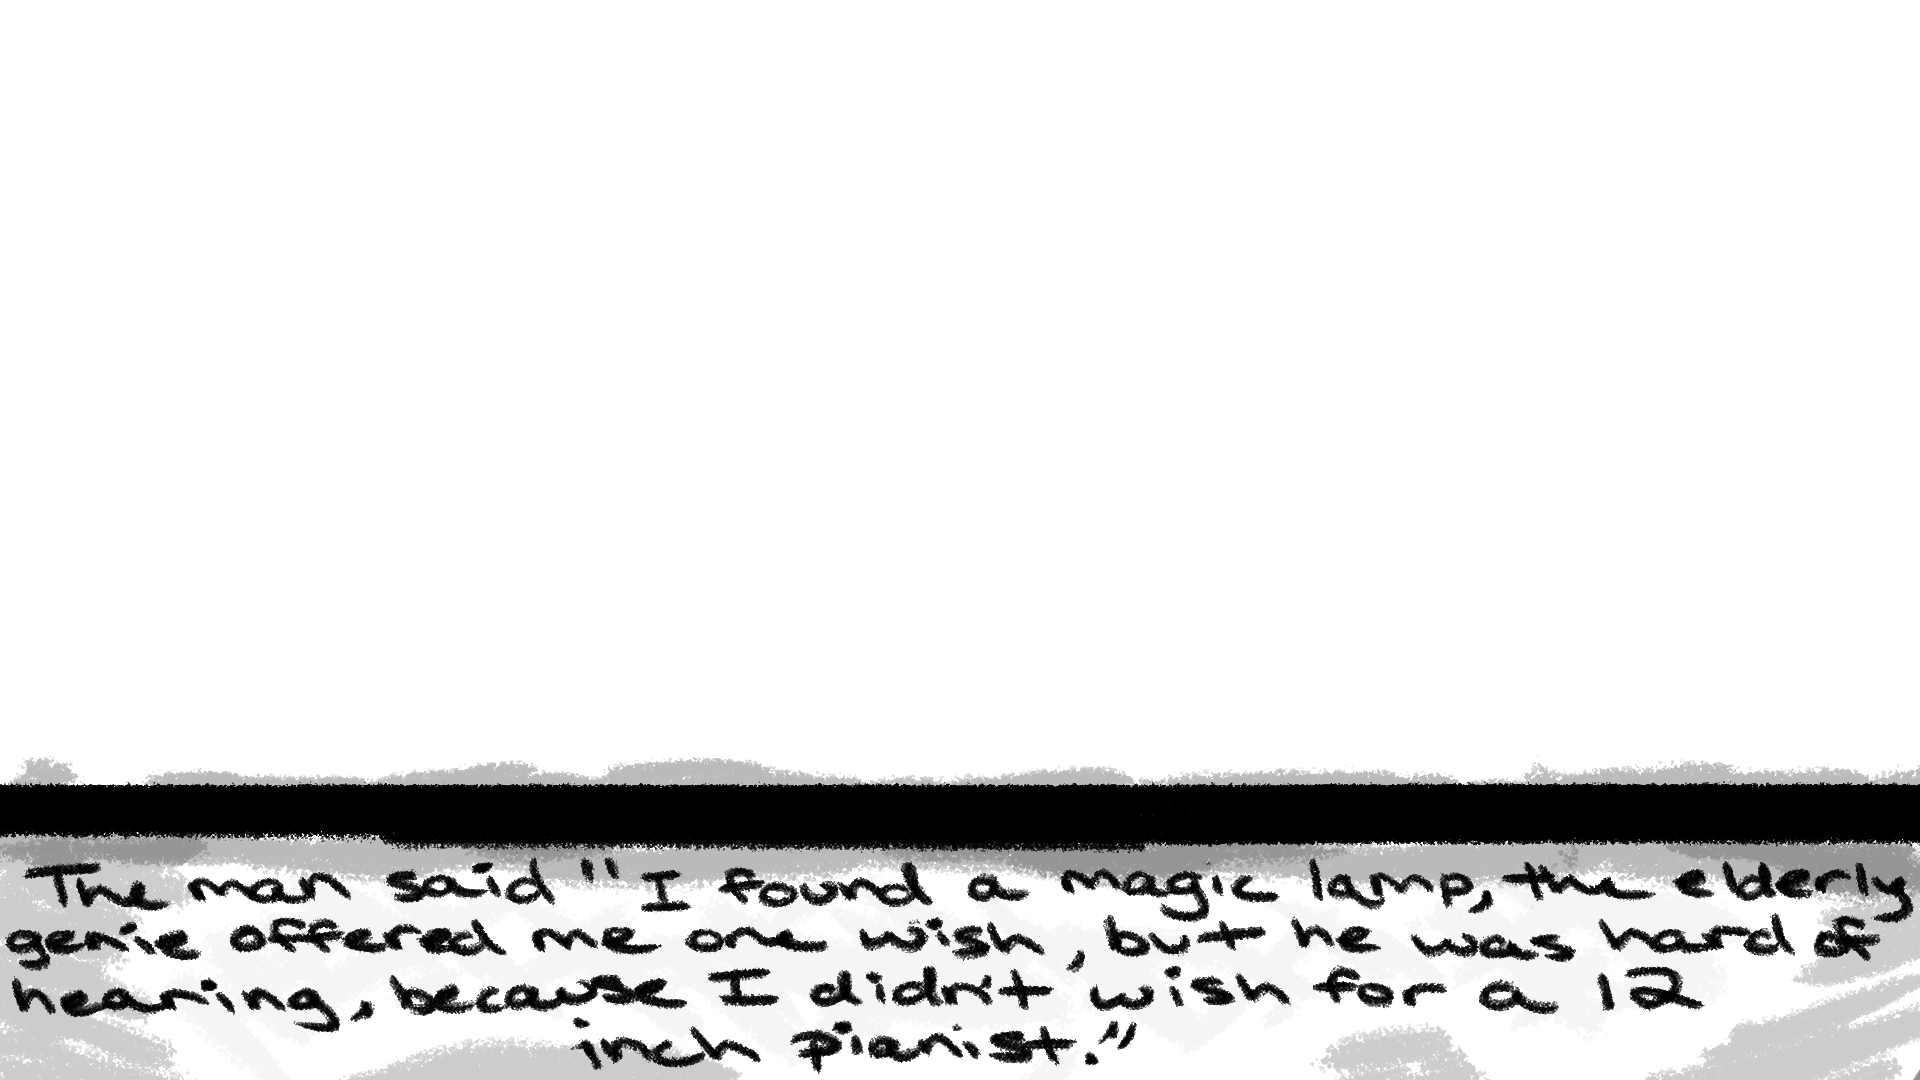 The man said "I found a magic lamp, the elderly
genie offered me one wish, but he was hard of
hearing, because I didn't wish for a 12
inch pianist."